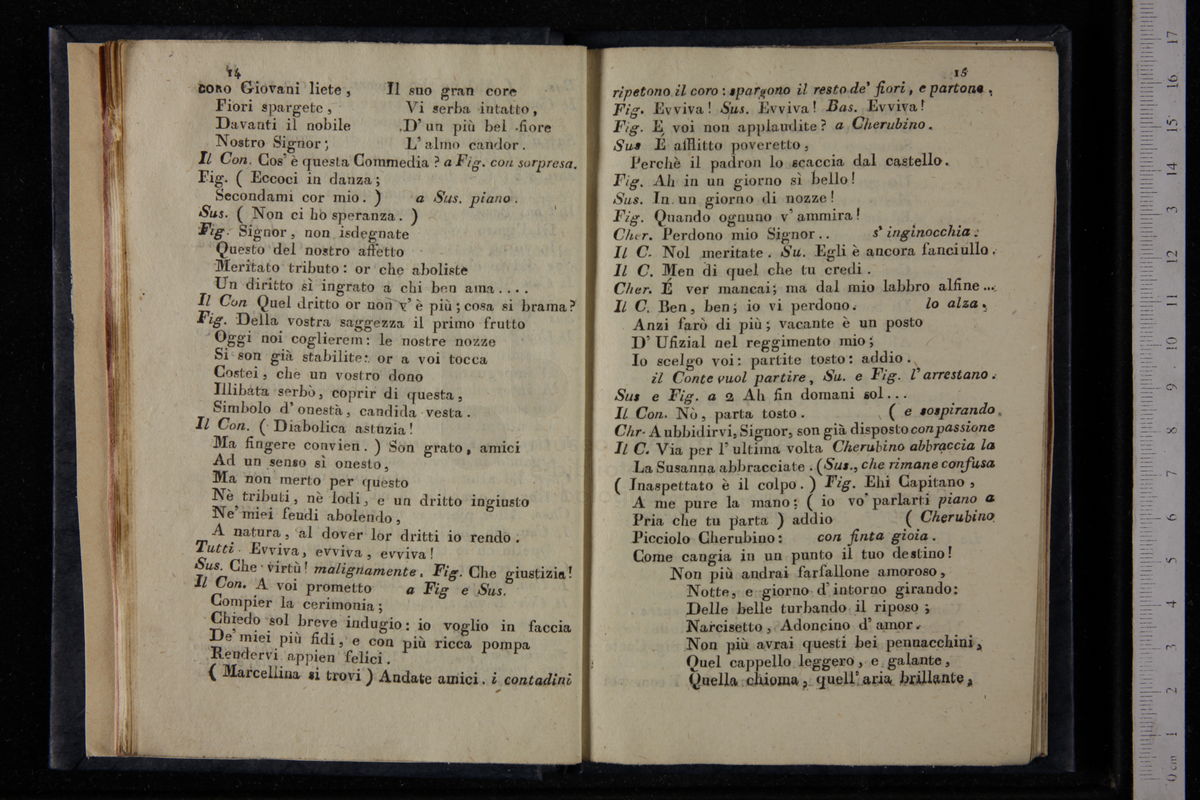 14
CORO Giovani liete, Il suo gran core
Fiori spargete, Vi serba intatto,
Davanti il nobile D'un più bel fiore
Nostro Signor; L'almo candor.
Il Con. Cos'è questa Commedia? a Fig. con sorpresa.
Fig. ( Eccoci in danza;
Secondami cor mio. ) a Sus. piano.
Sus. ( Non ci hò speranza. )
Fig. Signor, non isdegnate
Questo del nostro affetto
Meritato tributo: or che aboliste
Un diritto sì ingrato a chi ben ama....
Il Con Quel dritto or non v'è più; cosa si brama?
Fig. Della vostra saggezza il primo frutto
Oggi noi coglierem: le nostre nozze
Si son già stabilite: or a voi tocca
Costei, che un vostro dono
Illibata serbò, coprir di questa,
Simbolo d'onestà, candida vesta.
Il Con. ( Diabolica astuzia!
Ma fingere convien. ) Son grato, amici
Ad un senso sì onesto,
Ma non merto per questo
Nè tributi, nè lodi, e un dritto ingiusto
Ne'miei feudi abolendo,
A natura, al dover lor dritti io rendo.
Tutti Evviva, evviva, evviva!
Sus. Che virtù! malignamente. Fig. Che giustizia!
Il Con. A voi prometto a Fig e Sus.
Compier la cerimonia;
Chiedo sol breve indugio: io voglio in faccia
De'miei più fidi, e con più ricca pompa
Rendervi appien felici.
( Marcellina si trovi ) Andate amici. i contadini
15
ripetono il coro: spargono il resto de' fiori, e partono,
Fig. Evviva! Sus. Evviva! Bas. Evviva!
Fig. E voi non applaudite? a Cherubino.
Sus É afflitto poveretto,
Perchè il padron lo scaccia dal castello.
Fig. Ah in un giorno sì bello!
Sus. In un giorno di nozze!
Fig. Quando ognuno v'ammira!
Cher. Perdono mio Signor.. s'inginocchia.
Il C. Nol meritate. Su. Egli è ancora fanciullo.
Il C. Men di quel che tu credi.
Cher. É ver mancai; ma dal mio labbro alfine...
Il C. Ben, ben; io vi perdono. lo alza,
Anzi farò di più; vacante è un posto
D'Ufizial nel reggimento mio;
Io scelgo voi: partite tosto: addio.
il Conte vuol partire, Su. e Fig. l'arrestano.
Sus e Fig. a 2 Ah fin domani sol...
Il Con. Nò, parta tosto. ( e sospirando,
Chr. A ubbidirvi, Signor, son già disposto con passione
Il C. Via per l'ultima volta Cherubino abbraccia la
La Susanna abbracciate. (Sus., che rimane confusa
( Inaspettato è il colpo. ) Fig. Ehi Capitano,
A me pure la mano; ( io vo'parlarti piano a
Pria che tu parta ) addio ( Cherubino
Picciolo Cherubino: con finta gioia.
Come cangia in un punto il tuo destino!
Non più andrai farfallone amoroso,
Notte, e giorno d'intorno girando:
Delle belle turbando il riposo;
Narcisetto, Adoncino d'amor.
Non più avrai questi bei pennacchini,
Quel cappello leggero, e galante,
Quella chioma, quell'aria brillante,
0 cm 1 2 3 4 5 6 7 8 9 10 11 12 13 14 15 16 17